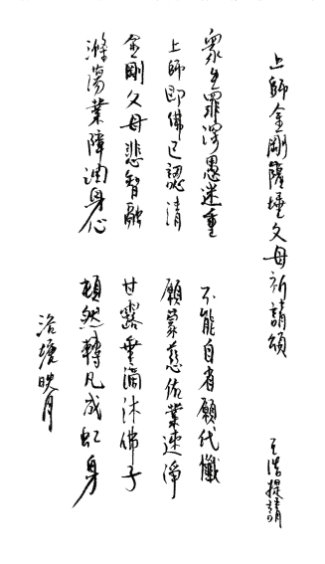 上師金剛薩埵父母祈請頌
王浩提請
眾生罪深愚迷重 不能自省願代懺
上師即佛已認清 願蒙慈佑業速淨
金剛父母悲智融 甘露垂滴沐佛子
滌蕩業障調身心 頓然轉凡成虹身
洛塘映月